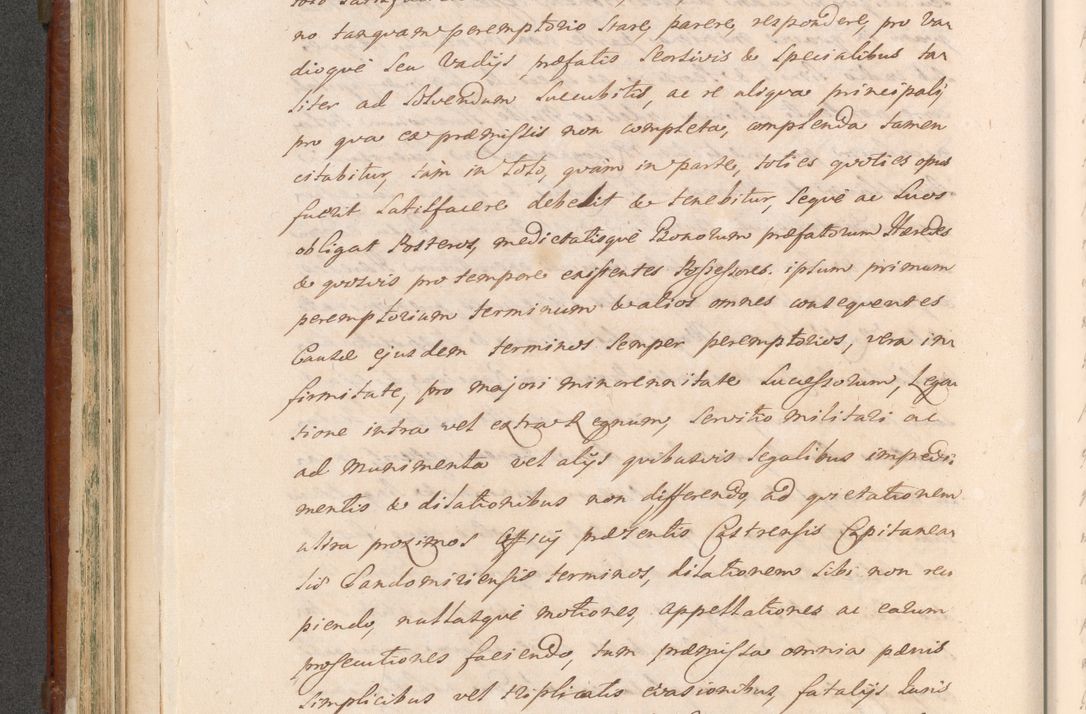 no tanquam peremptorio stare, parere, respondere, pro Va
dioquè seu Vadijs, præfatis seorsivis & specialibus ta
liter ad solvendum succubitis, ac re aliqua principalj
pro qua ex præmissis non completa, complenda tamen
citabitur, tàm in toto, quàm in parte, toties quoties opus
fuerit satisfacere debebit & tenebitur, sequè ac suos
obligat Posteros, medietatisquè Bonorum præfatorum Hæredes
& quosvis pro tempore existentes Possessores. ipsum primum
peremptorium terminum & alios omnes consequentes
Causæ ejusdem terminos semper peremptorios, vera in
firmitate, pro majori minorennitate Sucessorum, Lega
tione intra vel extra Regnum, servitio militari ac
ad munimenta vel alijs quibusvis legalibus impedi
mentis & dilationibus non differendo, ad quietationem
ultra proximos Officij præsentis Castrensis Capitanea
lis Sandomiriensis terminos, dilationem sibi non reci
piendo, nullasquè motiones, appellationes ac earum
prosecutiones faciendo, tum præmissa omnia pænis
simplicibus vel triplicatis evasionibus, fatalijs Juris